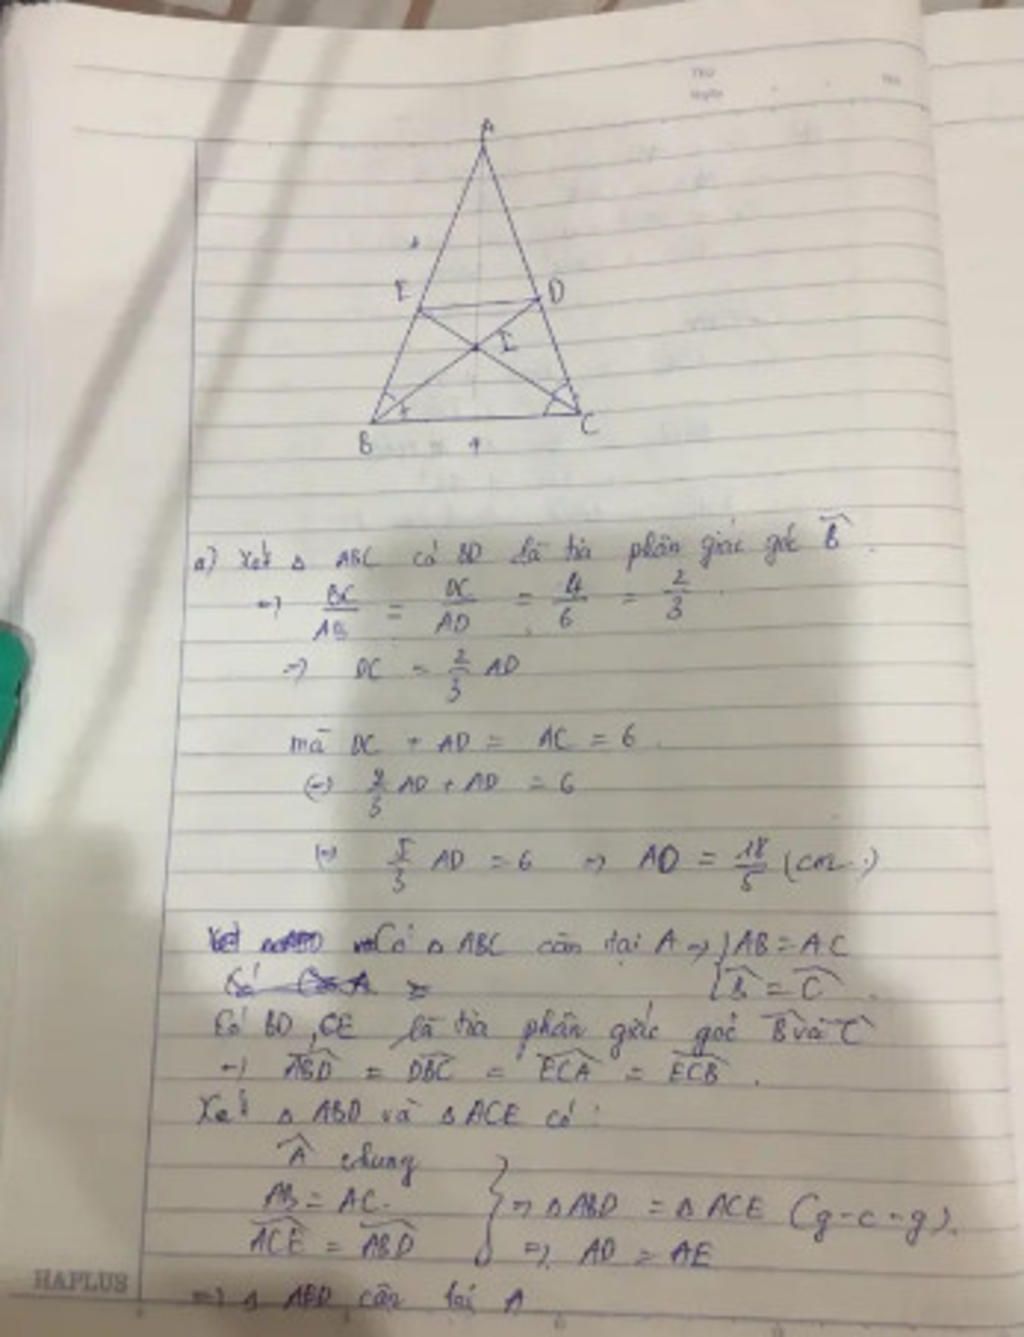 A
E
D
I
B
C
4
a) Xét Δ ABC có BD là tia phân giác góc B̂.
=> BC/AB = DC/AD = 4/6 = 2/3
=> DC = 2/3 AD
mà DC + AD = AC = 6.
<=> 2/3 AD + AD = 6
<=> 5/3 AD = 6 => AD = 18/5 (cm.)
Có Δ ABC cân tại A => { AB = AC
B̂ = Ĉ.
Có BD, CE là tia phân giác góc B̂ và Ĉ
=> ABD = DBC = ECA = ECB.
Xét Δ ABD và Δ ACE có:
Â chung
AB = AC.
} => Δ ABD = Δ ACE (g-c-g).
ACE = ABD
=> AD = AE
=> Δ AED cân tại A
HAPLUS